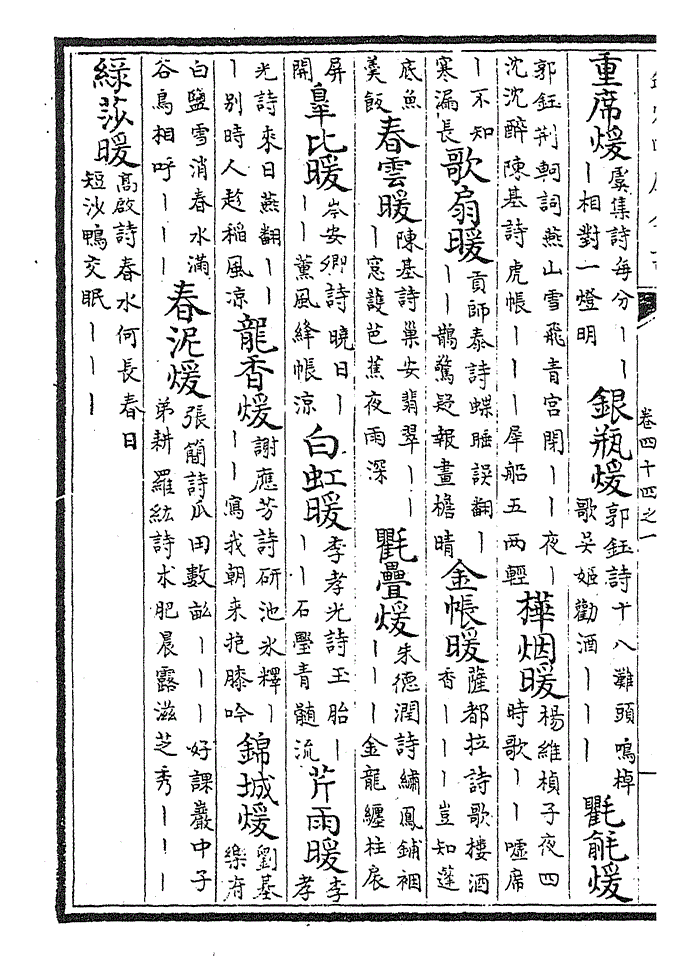 卷四十四之一 一
重席煖虞集詩每分丨丨丨相對一燈明銀瓶煖郭鈺詩十八灘頭鳴棹歌吳姬勸酒丨丨丨氍毹煖
郭鈺荆軻詞燕山雪飛青宮閉丨丨夜丨沈沈醉陳基詩虎帳丨丨丨犀船五兩輕樺烟暖楊維楨子夜四時歌丨丨噓席
丨不知寒漏長歌扇暖貢師泰詩蝶睡誤翻丨丨丨鵲驚疑報畫檐晴金帳暖薩都拉詩歌樓酒香丨丨丨豈知蓬
底魚羮飯春雲暖陳基詩巢安翡翠丨丨丨窓護芭蕉夜雨深氍疊煖朱德潤詩繡鳳鋪裀丨丨丨金龍纏柱扆
屏開臯比暖岑安卿詩曉日丨丨丨薰風絳帳涼白虹暖李孝光詩玉胎丨丨丨石璺青髓流芹雨暖李孝
光詩來日燕翻丨丨丨别時人趁稻風涼龍香煖謝應芳詩研池氷釋丨丨丨寫我朝来抱膝吟錦城煖劉基樂府
白鹽雪消春水滿谷鳥相呼丨丨丨春泥煖張簡詩瓜田數畝丨丨丨好課巖中子弟耕羅紘詩术肥晨露滋芝秀丨丨丨
綠莎暖高啟詩春水何長春日短沙鴨交眠丨丨丨